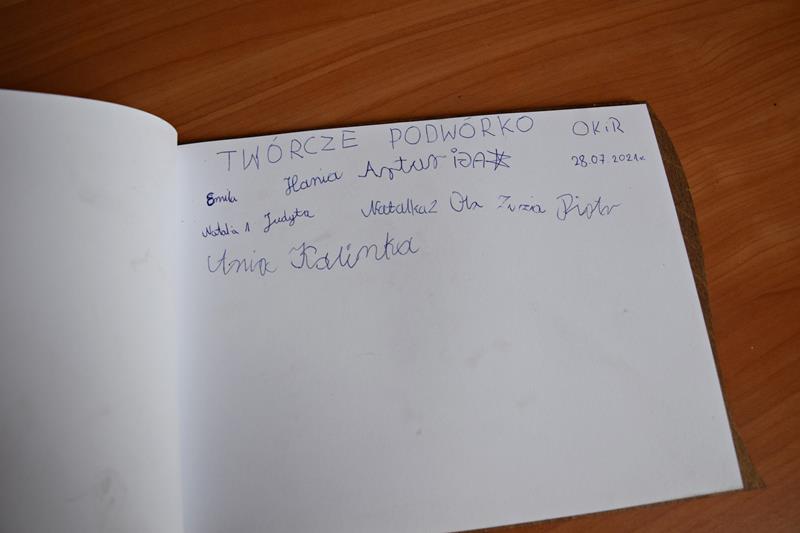 TWÓRCZE PODWÓRKO OKiR
Emila Hania Artur iDA 28.07.2021r.
Natalia 1 Judyta Natalka2 Ola Zuzia Piotr
Ania Kalinka